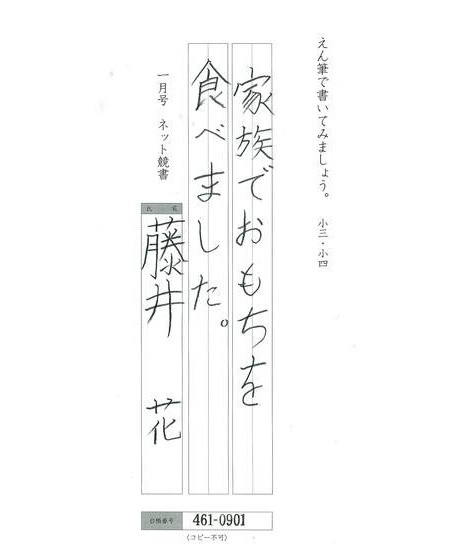 えん筆で書いてみましょう。 小三・小四
家族でおもちを
食べました。
一月号 ネット競書
氏 名
藤井 花
会員番号 461-0901
(コピー不可)